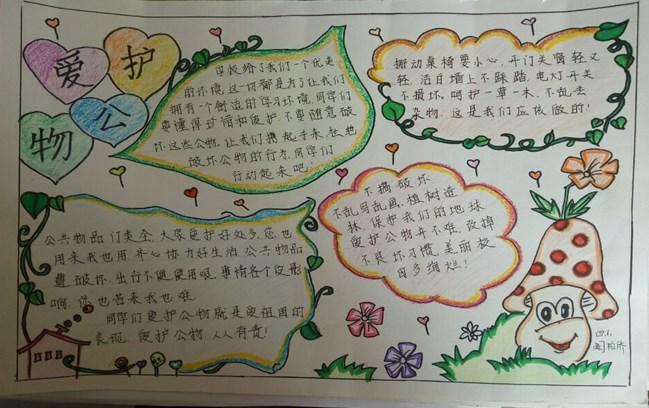 爱护
公物
学校给了我们一个优美
的环境,这一切都是为了让我们
拥有一个舒适的学习环境,同学们
要懂得珍惜和爱护,不要随意破
坏这些公物,让我们携起手来,杜绝
破坏公物的行为,同学们
行动起来吧!
搬动桌椅要小心,开门关窗轻又
轻,洁白墙上不踩踏,电灯开关
不损坏,呵护一草一木,不乱丢
杂物,这是我们应该做的!
公共物品门类全,大家爱护好处多,您也
用来我也用,齐心协力好生活,公共物品
费破坏,出行不便
事情各个没形
你也苦来我也难
同学们爱护公物就是爱祖国的
表现,爱护公物,人人有责!
不搞破坏
不乱写乱画,植树造
林,保护我们的地球
爱护公物并不难,改掉
不良坏习惯,美丽校
园多绚烂!
四.1.